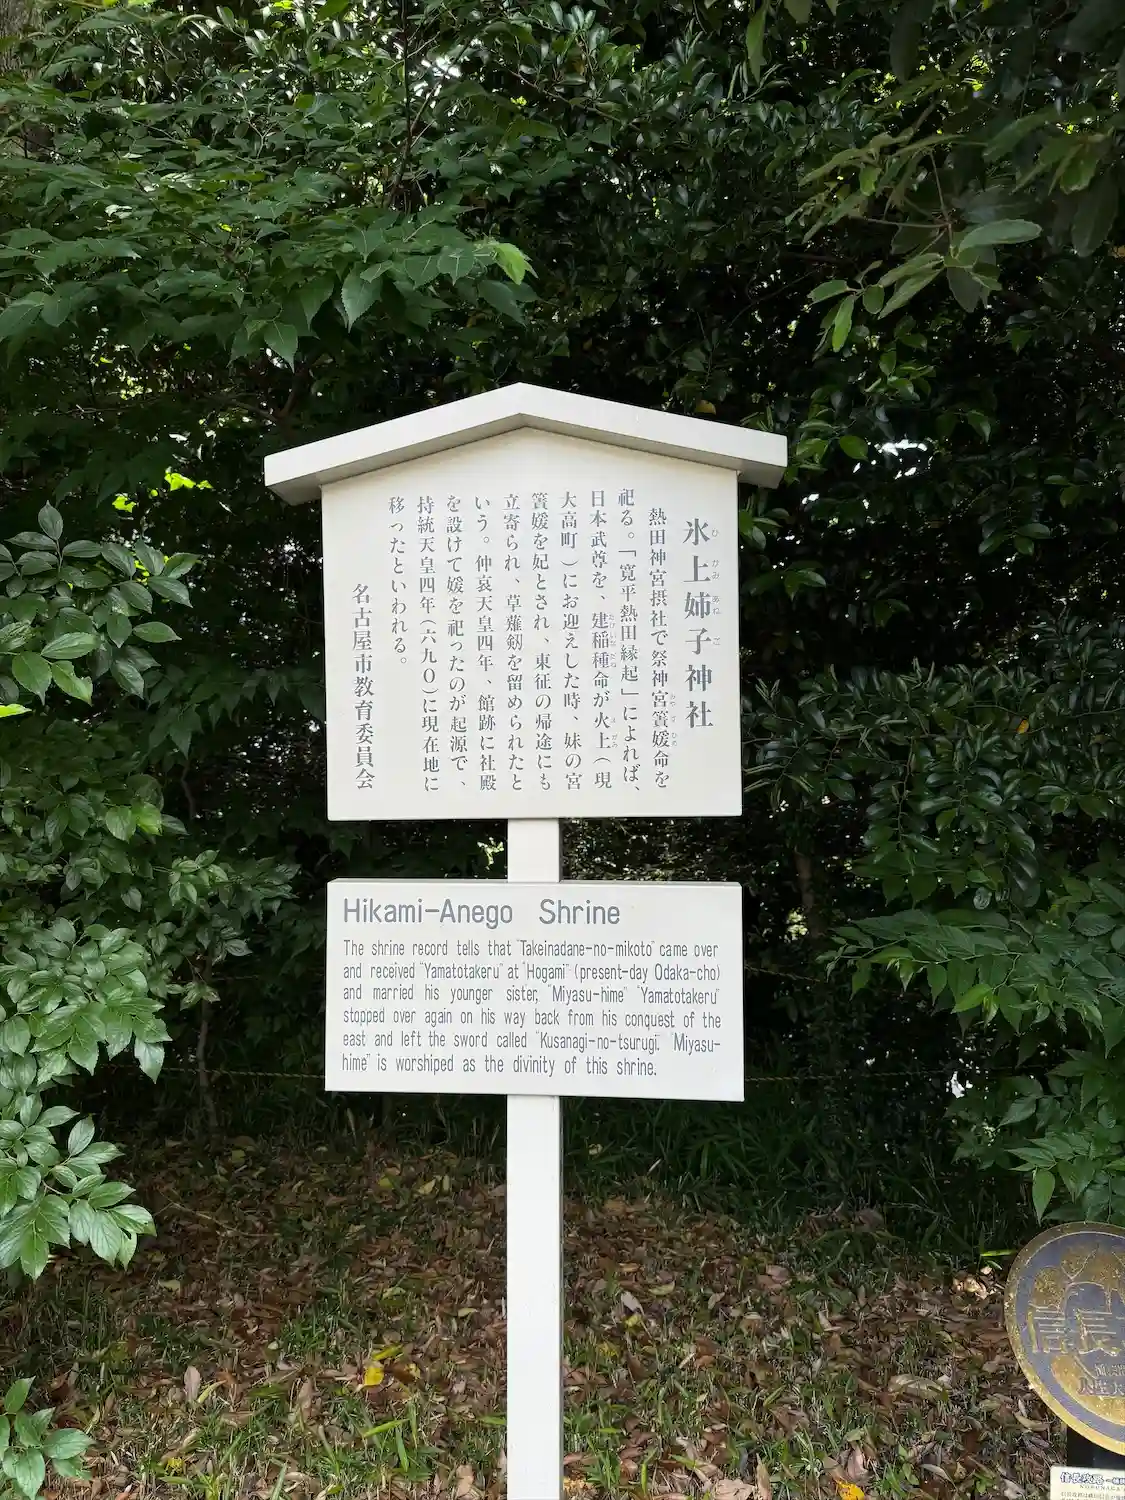 氷上姉子神社
熱田神宮摂社で祭神宮簀媛命を
祀る。「寛平熱田縁起」によれば、
日本武尊を、建稲種命が火上(現
大高町)にお迎えした時、妹の宮
簀媛を妃とされ、東征の帰途にも
立寄られ、草薙剱を留められたと
いう。仲哀天皇四年、館跡に社殿
を設けて媛を祀ったのが起源で、
持統天皇四年(六九〇)に現在地に
移ったといわれる。
名古屋市教育委員会
Hikami-Anego Shrine
The shrine record tells that "Takeinadane-no-mikoto" came over
and received "Yamatotakeru" at "Hogami" (present-day Odaka-cho)
and married his younger sister, "Miyasu-hime" "Yamatotakeru"
stopped over again on his way back from his conquest of the
east and left the sword called "Kusanagi-no-tsurugi." "Miyasu-
hime" is worshiped as the divinity of this shrine.
信長
信長攻路